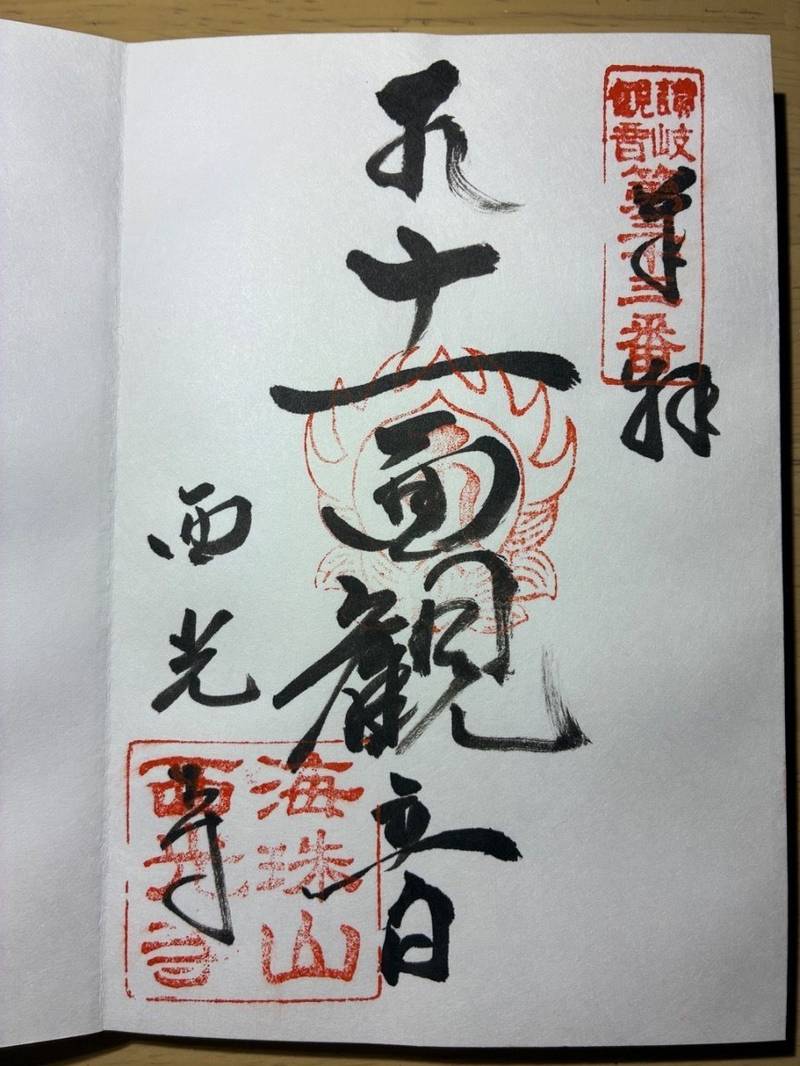 讃岐
観音
第三十三番
奉拝
十一面観音
西光寺
海珠山
西光寺